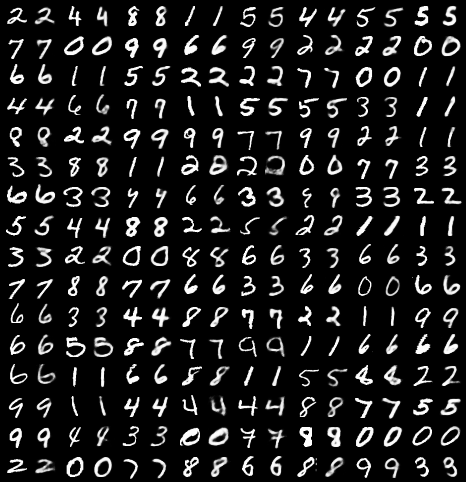 2 2 4 4 8 8 1 1 5 5 4 4 5 5 5 5
7 7 0 0 9 9 6 6 9 9 2 2 2 2 0 0
6 6 1 1 5 5 2 2 2 2 7 7 0 0 1 1
4 4 6 6 7 7 1 1 5 5 5 5 3 3 1 1
8 8 2 2 9 9 9 9 7 7 9 9 2 2 1 1
3 3 8 8 1 1 2 2 2 2 0 0 7 7 3 3
6 6 3 3 4 4 6 6 3 3 9 9 3 3 2 2
5 5 4 4 8 8 2 2 5 5 2 2 1 1 1 1
3 3 2 2 0 0 8 8 6 6 3 3 6 6 3 3
7 7 8 8 7 7 6 6 3 3 6 6 0 0 6 6
6 6 3 3 4 4 8 8 7 7 2 2 1 1 9 9
6 6 5 5 8 8 7 7 9 9 1 1 6 6 6 6
6 6 1 1 6 6 8 8 1 1 5 5 8 8 2 2
9 9 1 1 4 4 4 4 4 4 8 8 7 7 5 5
9 9 4 4 3 3 0 0 7 7 8 8 0 0 0 0
2 2 0 0 7 7 8 8 6 6 8 8 9 9 3 3